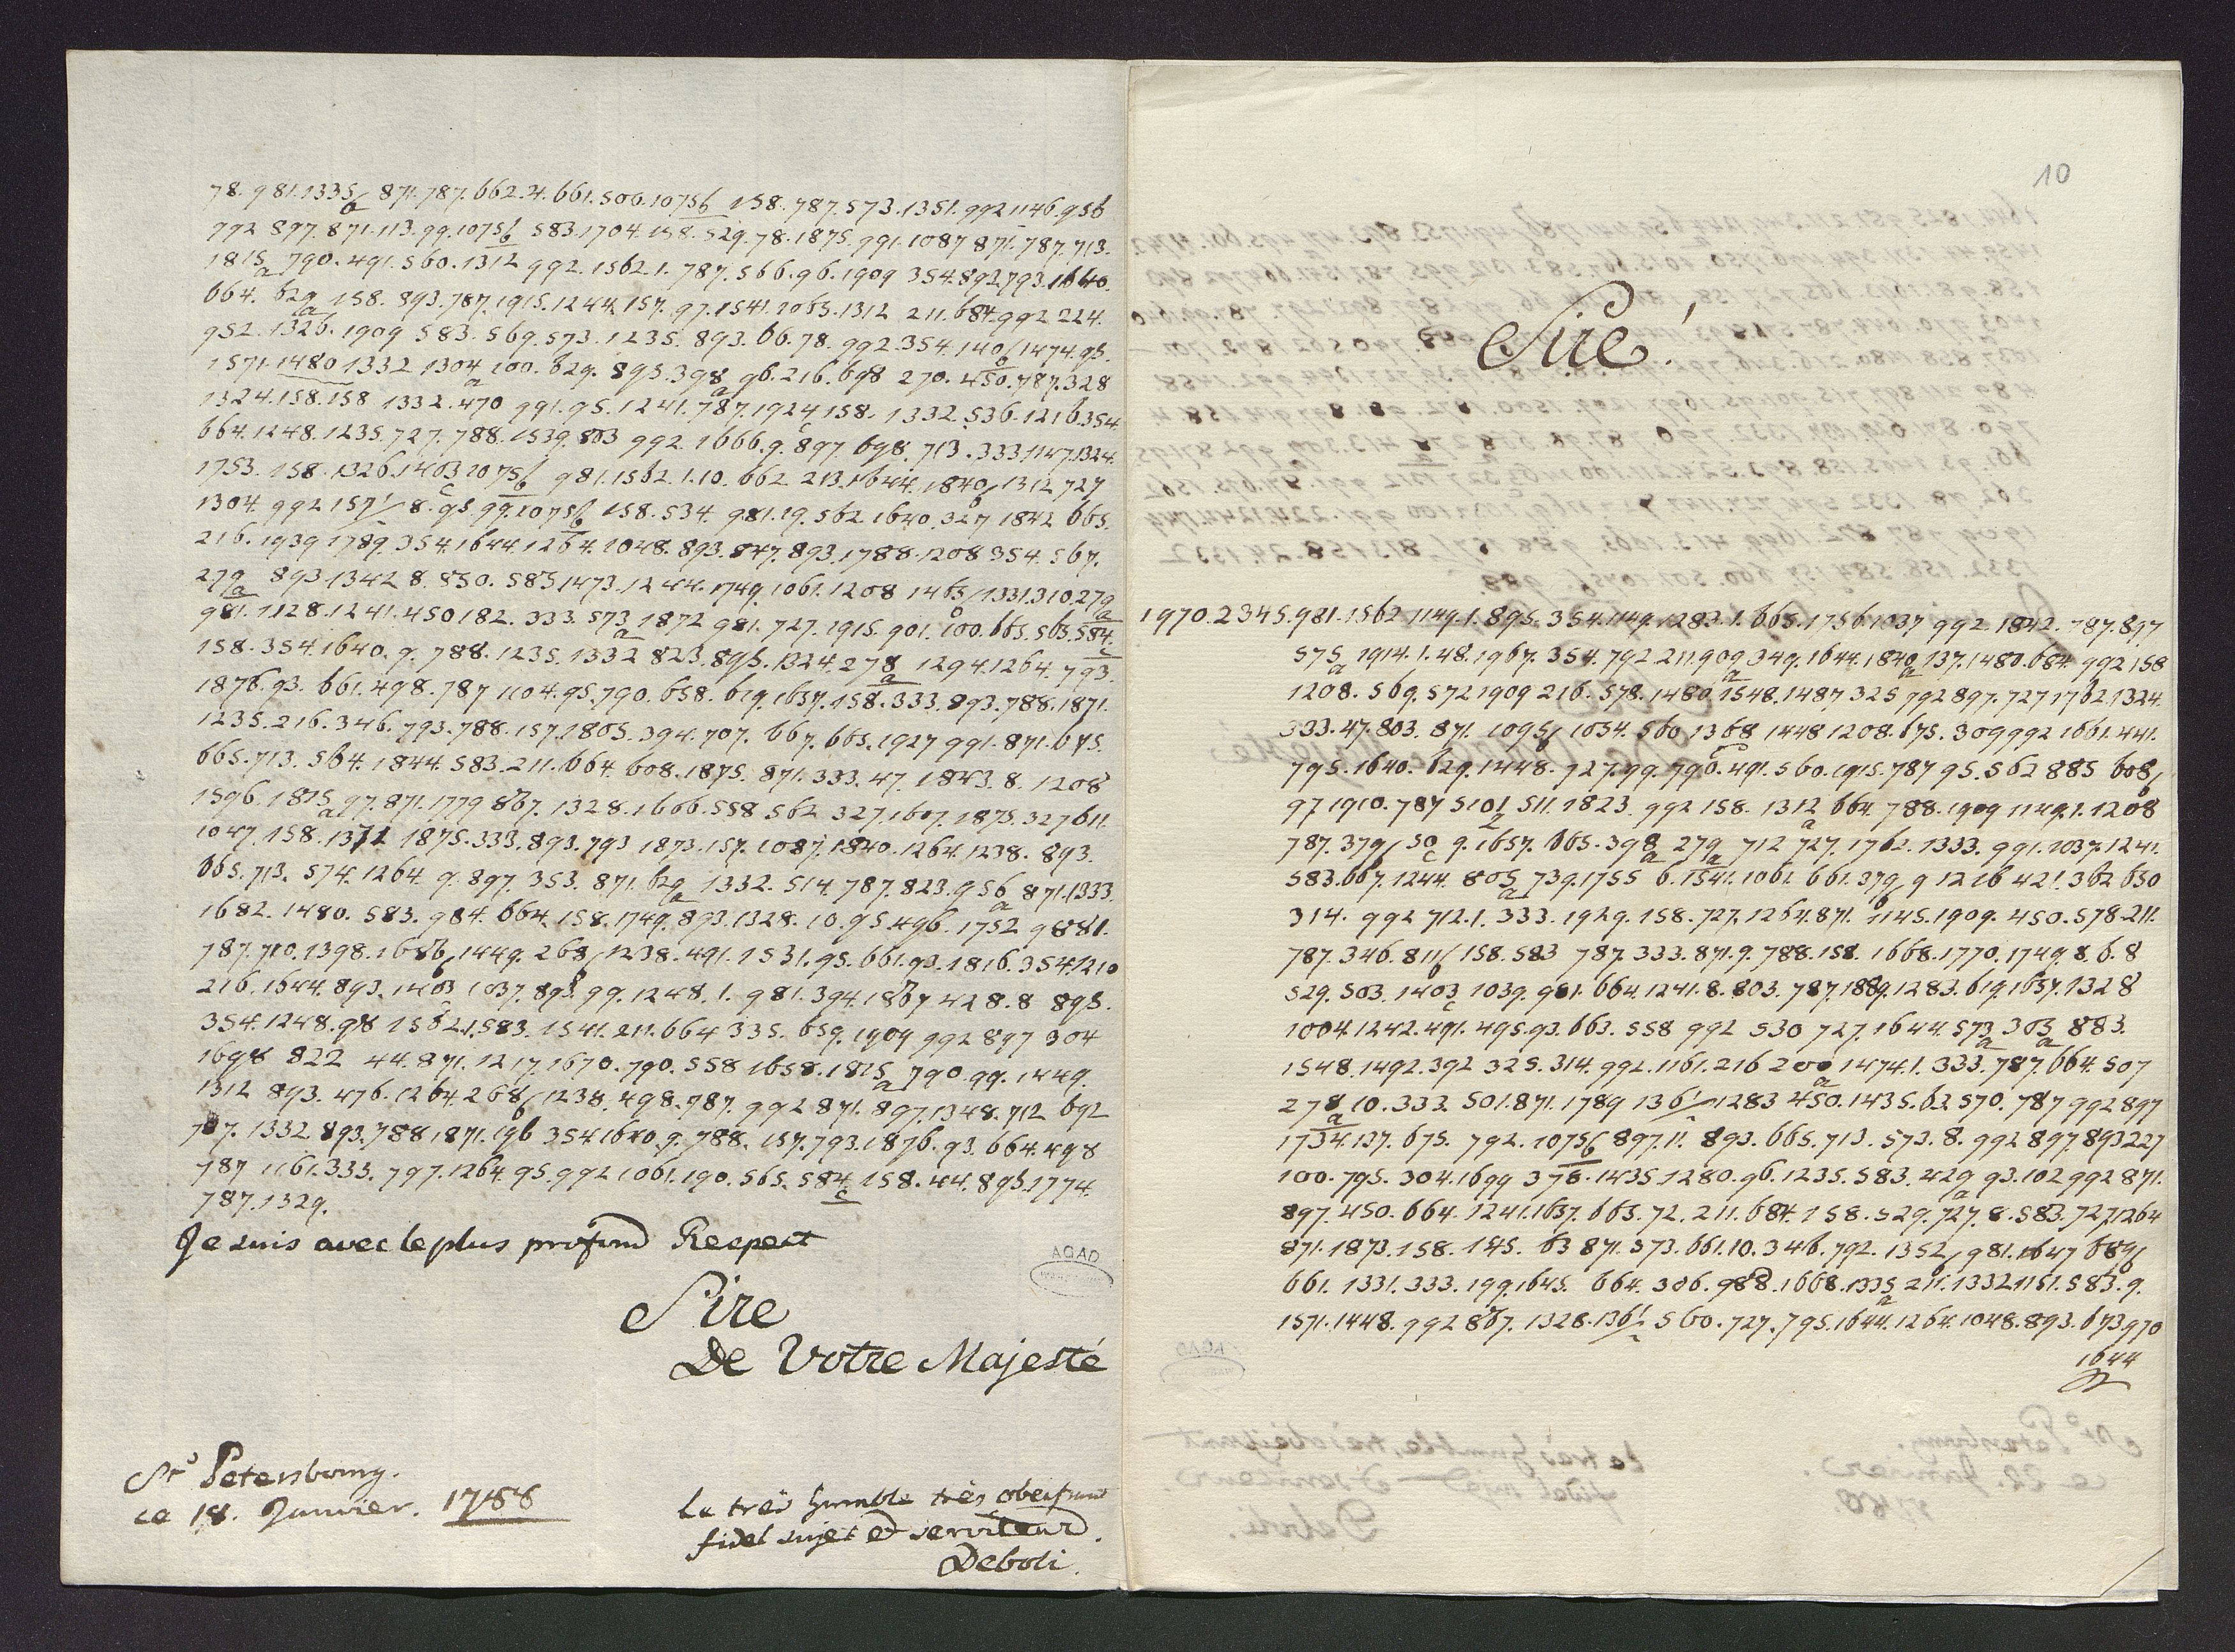 78.981.1335/a 871.787.662.4.661.506.1075b 158.787.573.1351.992 1146.956
992 897.871.113.99.1075b 583.1704.158.529.78.1875.991.1087 871.787.713.
1815a 790.491.560.1312 992.1562.1.787.566.96.1909 354.892.793.1640.
664.629a 158.893.787.1915.1244.157.97.1541.1065.1312 211.684.992 224.
952.1326.1909 583.569.573.1235.893.66.78.992.354.140/1474.95.
1571.1480 1332 1304a 100.629.895.398a 96.216.698 270.450.787.328
1324.158.158 1332.470 991.95.1241.787.1924 158.1332.536.1216.354
664.1248.1235.727.788.1539.803 992.1666.9.897.698.713.333.1147.1324.
1753.158.1326.1403c 1075b 981.1562.1.10.662 213.1644.1840/1312 727
1304.992 157/8.95.99.1075b 158.534.981.19.562.1640.327 1842 665.
216.1939 1789.354.1644.1264.1048.893.847.893.1788.1208 354.567.
279a 893.1342 8.850.583 1473.1244.1749.1061.1208 1465/1331.310.279a
981.1128.1241.450 182.333.573a 1872 981.727.1915.901.100.665.565.584c
158.354.1640.9.788.1235.1332 823.895.1324.278a 1294.1264.793.
1876.93.661.498.787 1104.95.790.658.619.1657.158.333.893.788.1871.
1235.216.346.793.788.157.1805.394.707.667.665.1927 991.871.675.
665.713.564.1844.583.211.664.608.1875.871.333.47.1843.8.1208
1596.1815a 97.871.1779 867.1328.1666.558 562 327.1607.1875.327 611.
1047.158.1371 1875.333.893.793 1873.157.1087.1840.1264.1238.893.
665.713.574.1264.9.897.353.871.629a 1332.514.787.823.956a 871.1333.
1682.1480.583.984.664.158.1749.893.1328.10.95.496.1752 9881.
787.710.1398.1686/1449.268/1238.491.1531.95.661.93.1816.354.1210
216.1644.893.1403c 1037.893.99.1248.1.981.394.1867 428.8 895.
354.1248.98 1562.1.583.1541.211.664 335.659.1909 992 897 304
1698 822 44.871.1217.1670.790.558 1658.1815a 790.99.1449.
1312 893.476.1264.268/1238.498.787.992 871.897.1348.712 692
787.1332.893.788 1871.196 354 1640.9.788.157.793.1876.93.664.498
787 1161.333.797.1264.95.992 1061.190.565.584c 158.44.895.1774.
787.1329.
Je suis avec le plus profond Respect
Sire
De Votre Majesté
St Petersbourg.
ce 18. Janvier. 1788
le très humble très obeissant
fidel sujet et serviteur.
Deboli.
AGAD
10
Sire!
1970.2345.981.1562 1149.1.895.354.1149.1283.1.665.1756 1037 992.1842.787.897
575a 1914.1.48.1967.354.792 211.909a 349.1644.1840a 137.1480.684.992 158
1208.569.572 1909 216.578.1480.1548.1487.325 792 897.727 1762.1324.
333.47.803.871.1095/ 1054.560 1368 1448 1208.675.309 992 1661.441.
795.1640.629.1448.727.99.790.491.560.1915.787 95.562 885 608/
97 1910.787 5101 511.1823.992 158.1312a 664.788.1909 1149.1.1208
787.379/50c 9.1657.665.398a 279a 712 727.1762.1333.991.1037.1241.
583.667.1244.805a 739.1755 6.1541.1061.661.379/9 1216 421.362 630
314.992 712.1.333.1929.158.727.1264.871.1145.1909.450.578.211.
787.346.811/158.583 787.333.871.9.788.158.1668.1770.1749.8.6.8
529.503.1403c 1039.981.664.1241.8.803.787.1889.1283.619.1657.1328
1004 1242.491.495.93.663.558 992 530 727.1644.573a 303a 883.
1548.1492.392 325.314.992.1161.216 200a 1474.1.333.787.664.507
278a 10.333.501.871.1789 136/1283 450.1435.63 570.787 992 897
1734.137.675.792.1075b 897.11.893.665.713.573.8.992 897.893 227
100.795.304.1699 378.1435.1280.96.1235.583.429a 93.102 992 871.
897.450.664.1241.1657.665.72.211.684.158.529.727.8.583.727.1264
871.1873.158.145.63 871.573.661.10.346.792.1352/981.1647 689/
661.1331.333.199.1645.664.306.988.1668.1335a 211.1332 1151.583.9.
1571.1448.992 867.1328.136/560.727.795.1644.1264.1048.893.673.970
1644